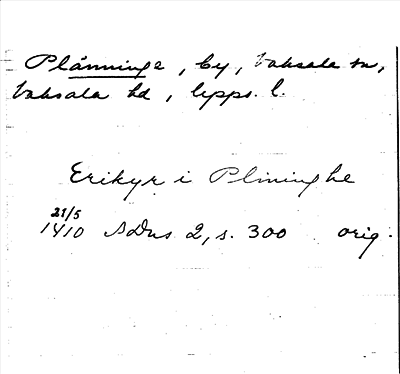 Plänninge, by, Vaksala sn,
Vaksala hd, Upps. l.
Erikyr i Plininghe
21/5
1410 SDns 2, s. 300 orig.